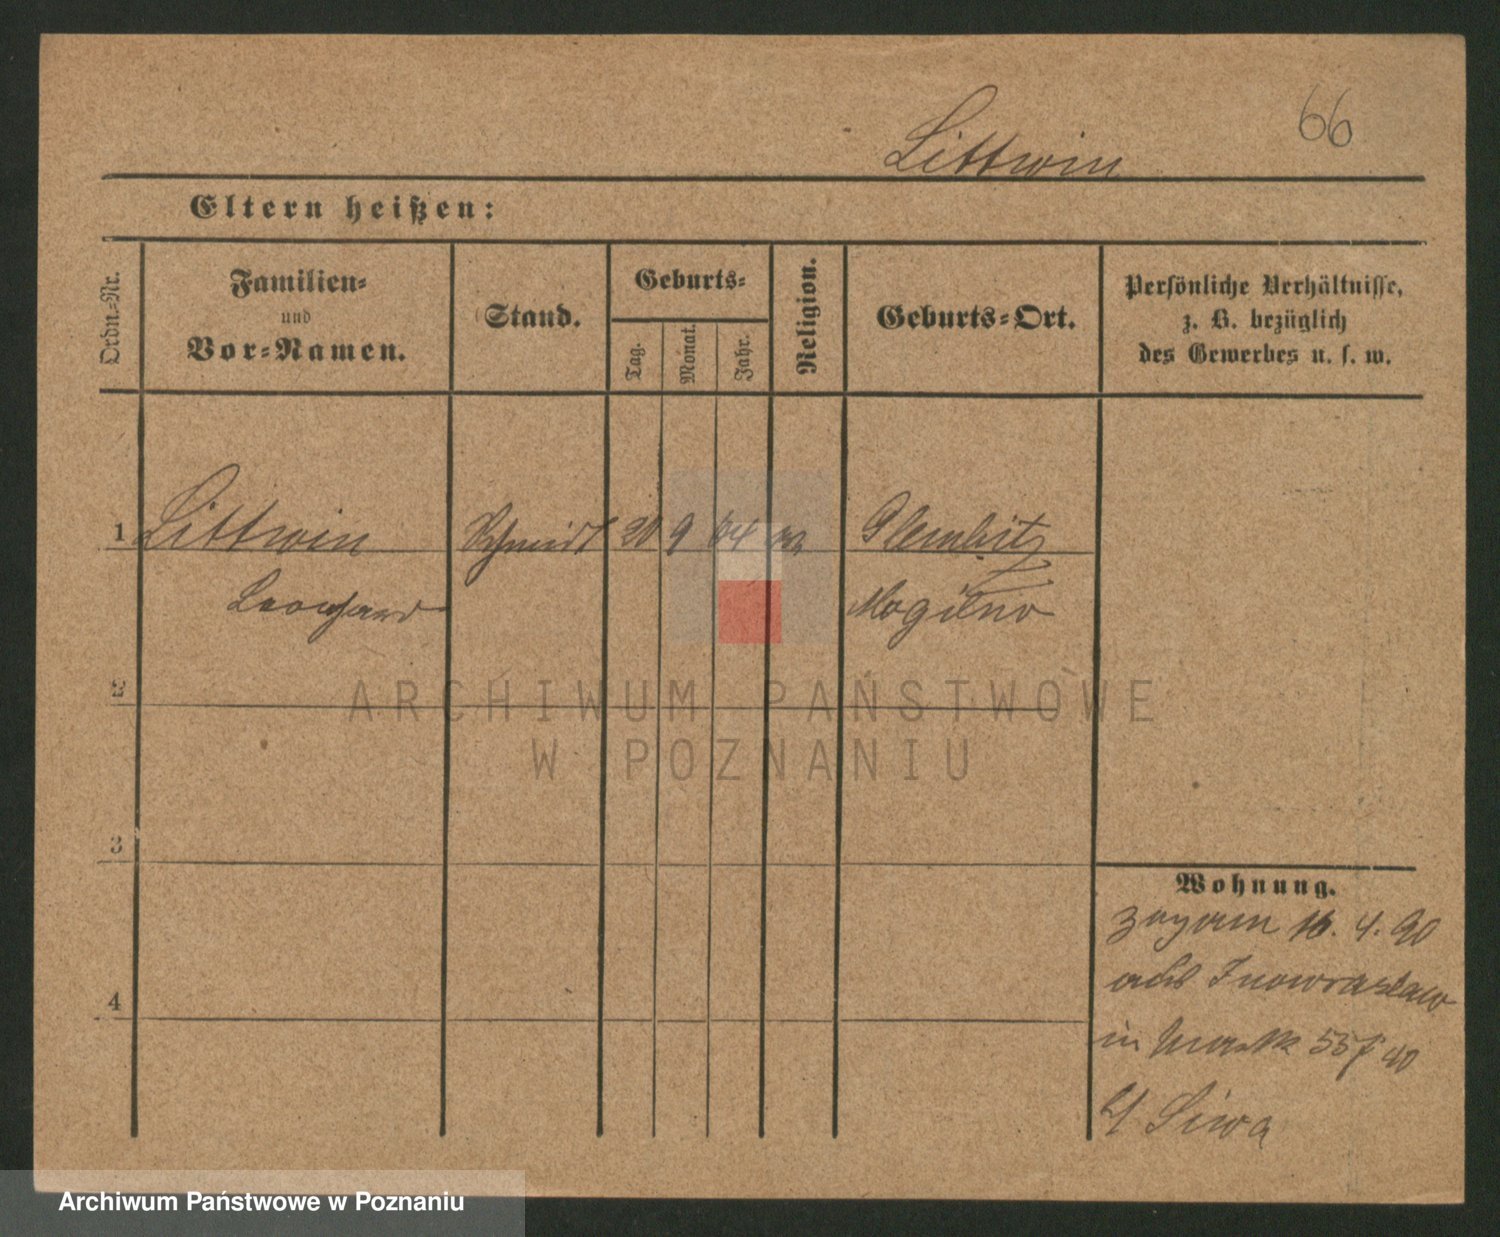 66
Littwin
Eltern heißen:
Ordn.-Nr.
Familien-
und
Vor-Namen.
Stand.
Geburts-
Tag.
Monat.
Jahr.
Religion.
Geburts-Ort.
Persönliche Verhältnisse,
z. B. bezüglich
des Gewerbes u. s. w.
1 Littwin Schmidt 20 9 64
Leonhard Mogilno
2
3
4
Wohnung.
zugam 16. 4. 90
aus Inowrazlaw
in 55
Siwa
ARCHIWUM PAŃSTWOWE
W POZNANIU
Archiwum Państwowe w Poznaniu